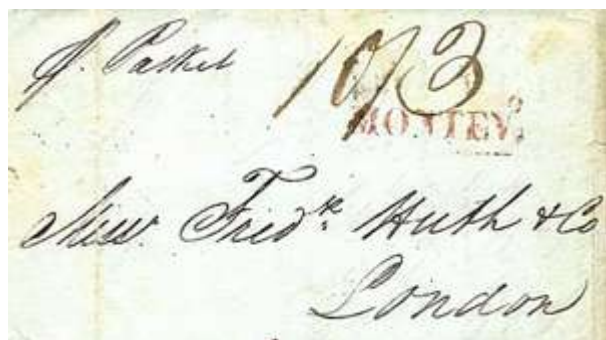 p. Packet
10/3
MONTEVº.
Mess. Fredk. Huth & Co
London